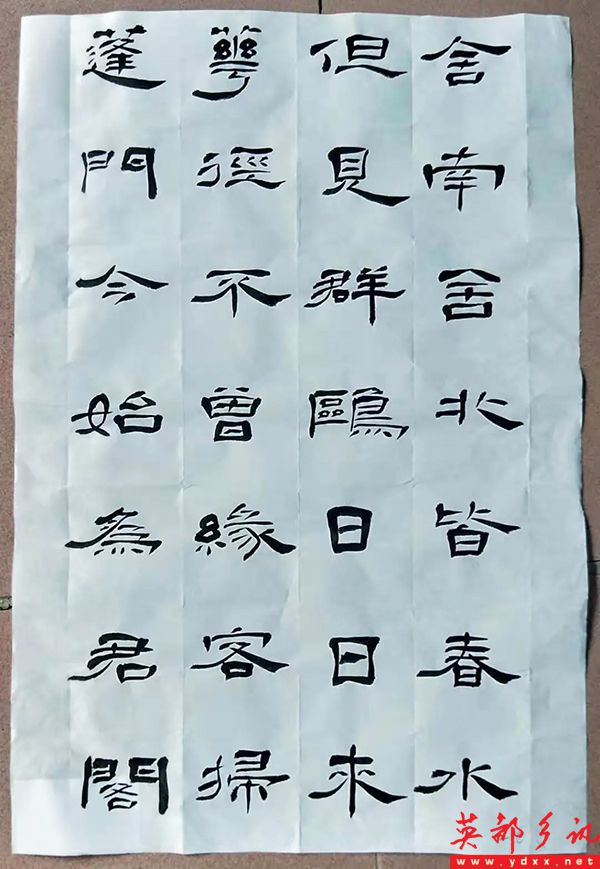 舍南舍北皆春水
但見群鷗日日來
蕐徑不曾緣客掃
蓬門今始為君閣
英都乡讯
www.ydxx.net